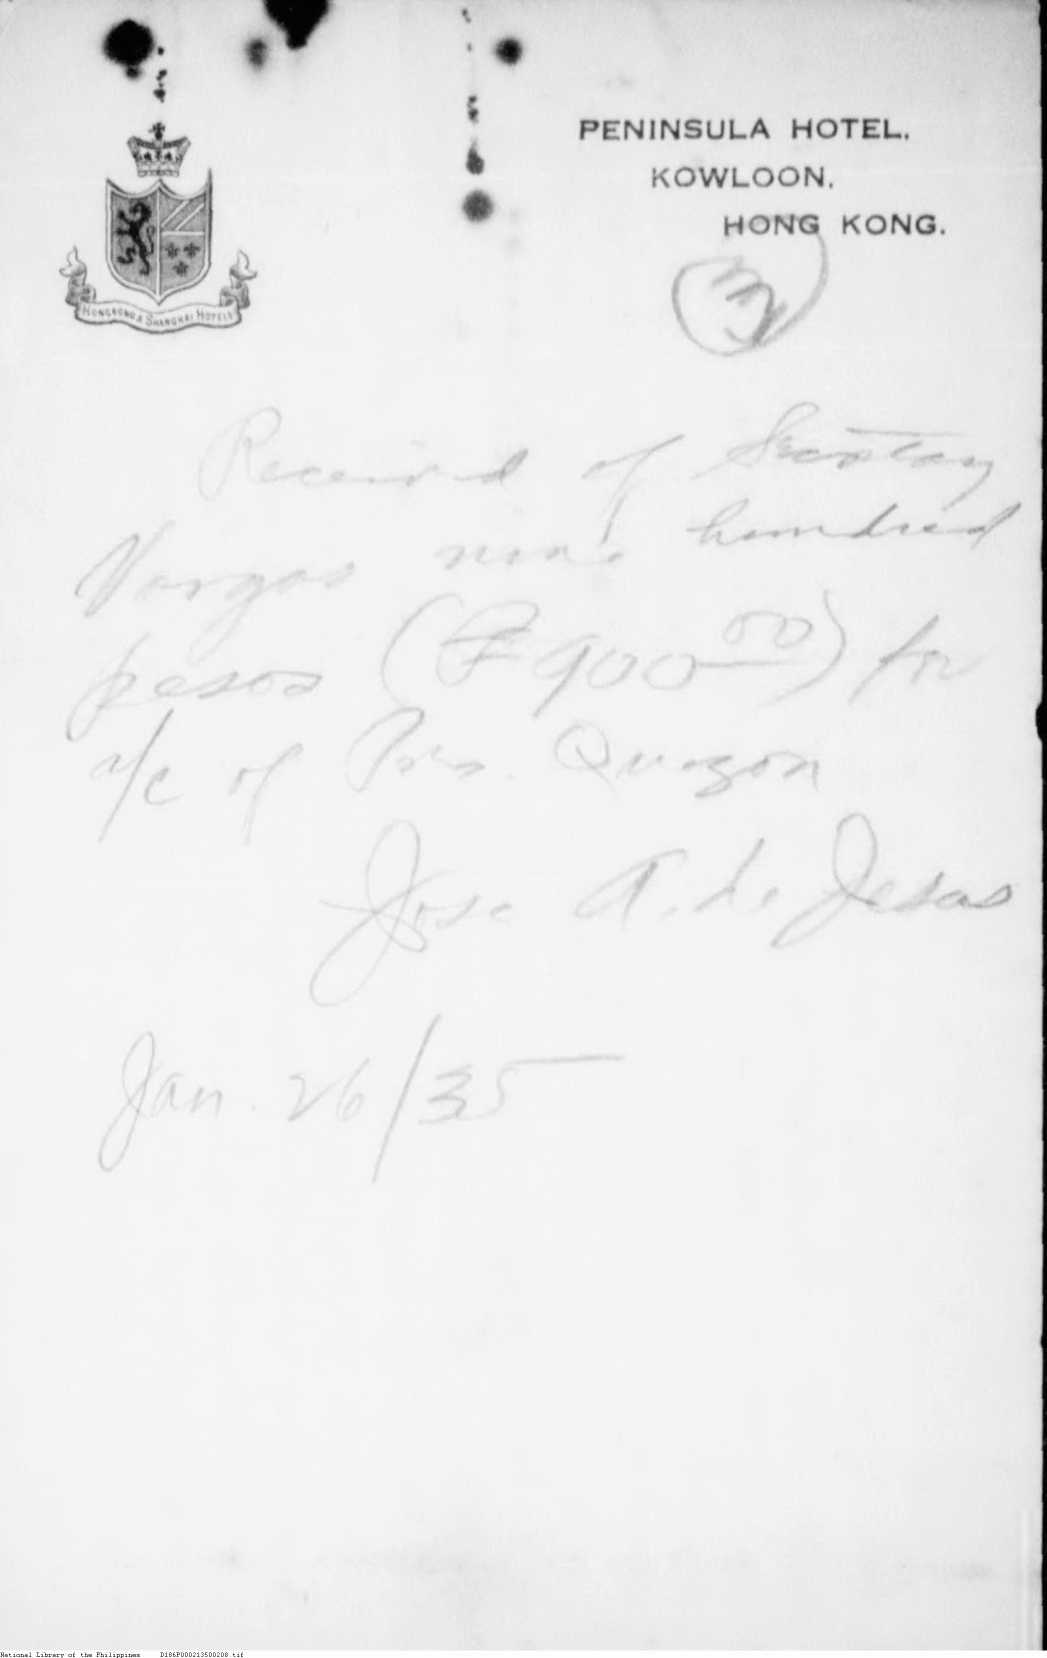 PENINSULA HOTEL,
KOWLOON,
HONG KONG.
HONGKONG & SHANGHAI HOTELS
3
Received of Secretary
Vargas nine hundred
pesos (₱900.00) for
a/c of Pres. Quezon
Jose A. de Jesus
Jan. 26/35
National Library of the Philippines D186P000213500208.tif